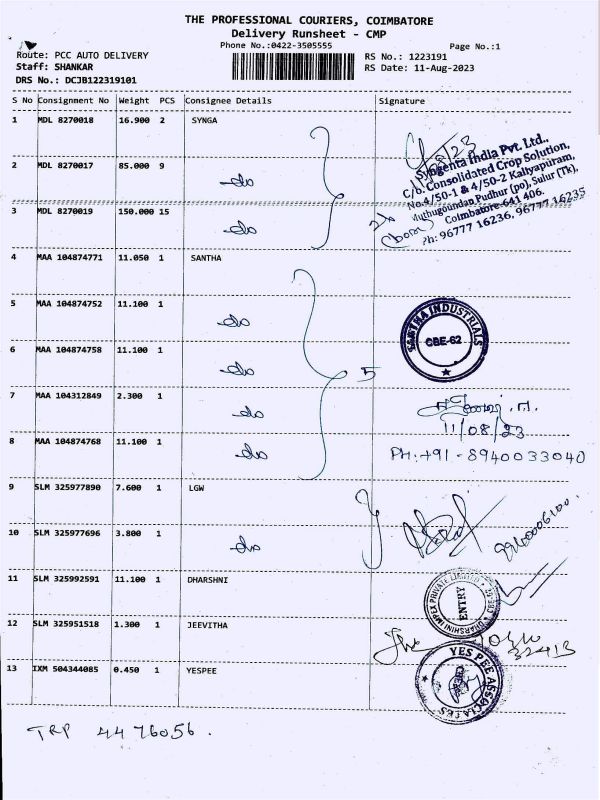 THE PROFESSIONAL COURIERS, COIMBATORE
Delivery Runsheet - CMP
Phone No.:0422-3505555
Page No.:1
Route: PCC AUTO DELIVERY
RS No.: 1223191
Staff: SHANKAR
RS Date: 11-Aug-2023
DRS No.: DCJB122319101
S No Consignment No Weight PCS Consignee Details Signature
1 MDL 8270018 16.900 2 SYNGA
2 MDL 8270017 85.000 9 do
3 MDL 8270019 150.000 15 do
Syngenta India Pvt. Ltd.,
C/o. Consolidated Crop Solution,
No.4/50-1 & 4/50-2 Kaliyapuram,
Muthugoundan Pudhur (po), Sulur (Tk),
Coimbatore-641 406.
Ph: 96777 16236, 96777 16235
4 MAA 104874771 11.050 1 SANTHA
5 MAA 104874752 11.100 1 do
6 MAA 104874758 11.100 1 do
5
7 MAA 104312849 2.300 1 do
8 MAA 104874768 11.100 1 do
SANTHA INDUSTRIALS
CBE-62
11/08/23
PH: +91 - 8940033040
9 SLM 325977890 7.600 1 LGW
10 SLM 325977696 3.800 1 do
9940006100
11 SLM 325992591 11.100 1 DHARSHNI
DHARSHINI IMPEX PRIVATE LIMITED
ENTRY
12 SLM 325951518 1.300 1 JEEVITHA
13 IXM 504344085 0.450 1 YESPEE
YES PEE ASSOCIATES
TRP 4476056.